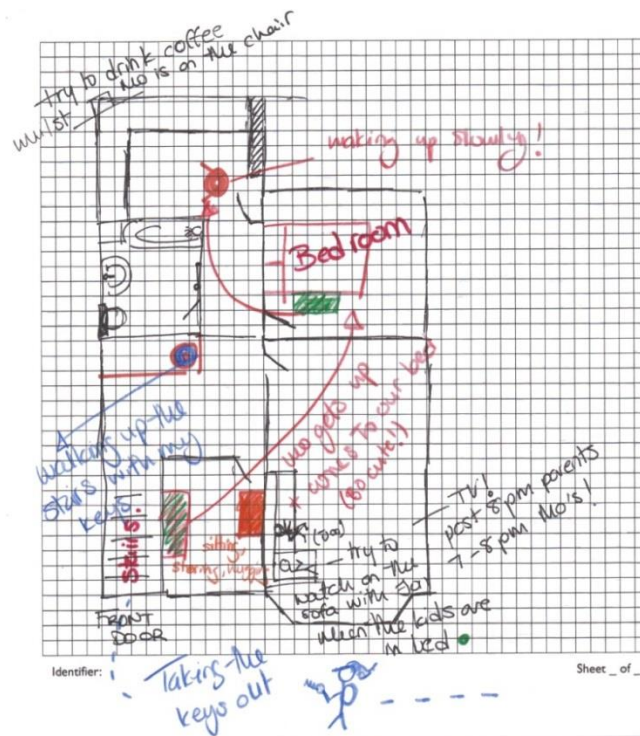 try to drink coffee
whilst Mo is on the chair
waking up slowly!
Bedroom
walking up the
stairs with my
keys
mo gets up
* comes to our bed
(so cute!!)
Stairs.
sitting,
sharing, nugget
TV!
post 8pm parents
7-8pm Mo's!
try to
watch on the
sofa with
when the kids are
in bed
FRONT
DOOR
Identifier:
Taking the
keys out
Sheet _ of _